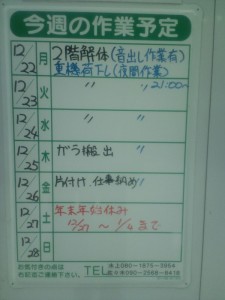 今週の作業予定
12/22 月 2階解体(音出し作業有)
重機荷下し(夜間作業)
12/23 火 〃 〃 21:00〜
12/24 水 〃 〃
12/25 木 ガラ搬出 〃
12/26 金 片付け 仕事納め 〃
12/27 土 年末年始休み
12/28 日 12/27 〜 1/4まで
お気付きの点は
右記迄ご連絡下さい。
TEL